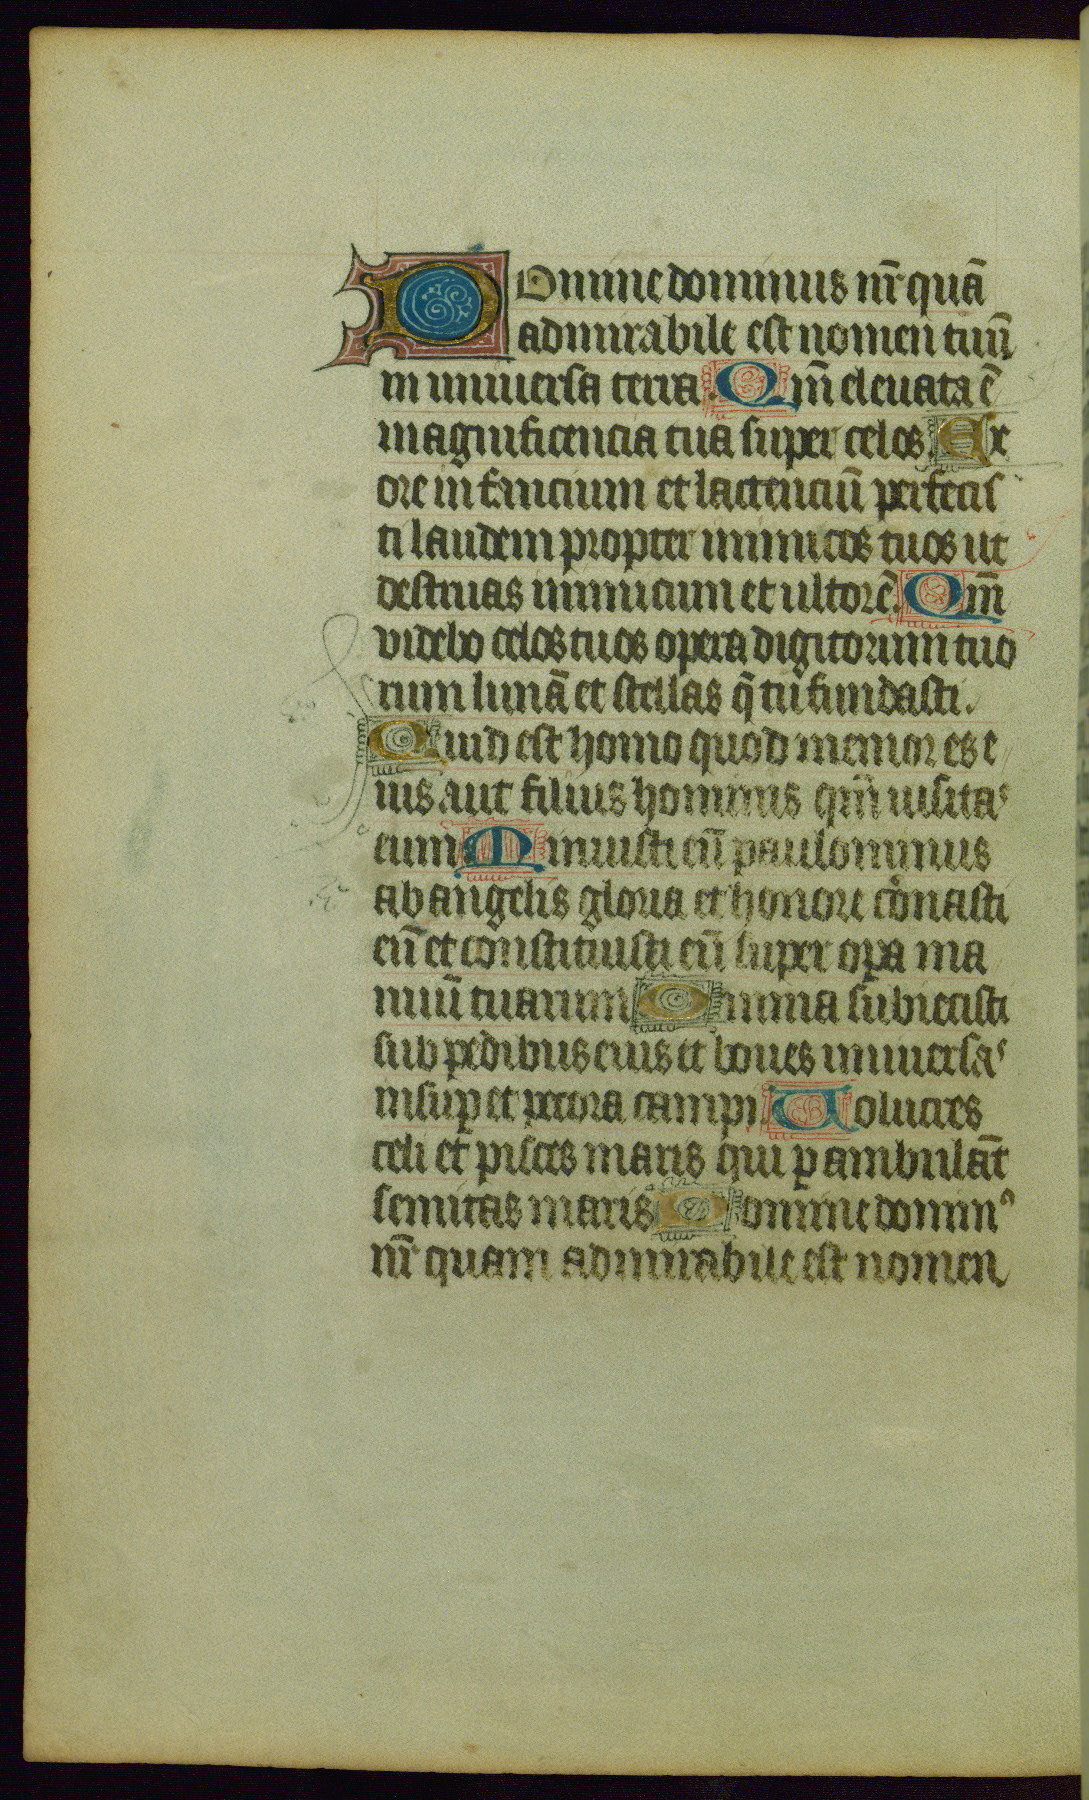 Domine dominus nr̄ quā
admirabile est nomen tuū
in uniuersa terra. Qm̄ eleuata ē
magnificencia tua super celos. Ex
ore infancium et lactenciū perfecis
ti laudem propter inimicos tuos ut
destruas inimicum et ultorē. Qm̄
videbo celos tuos opera digitorum tuo
rum lunā et stellas q̄ tu fundasti.
Quid est homo quod memor es e
ius aut filius hominis qm̄ uisitas
eum. Minuisti eū paulominus
ab angelis gloria et honore coronasti
eū et constituisti eū super opa ma
nuū tuarum. Omnia subiecisti
sub pedibus eius et boues uniuersas
insuꝑ et pecora campi. Uolucres
celi et pisces maris qui ꝑambulāt
semitas maris. Domine dominꝰ
nr̄ quam admirabile est nomen